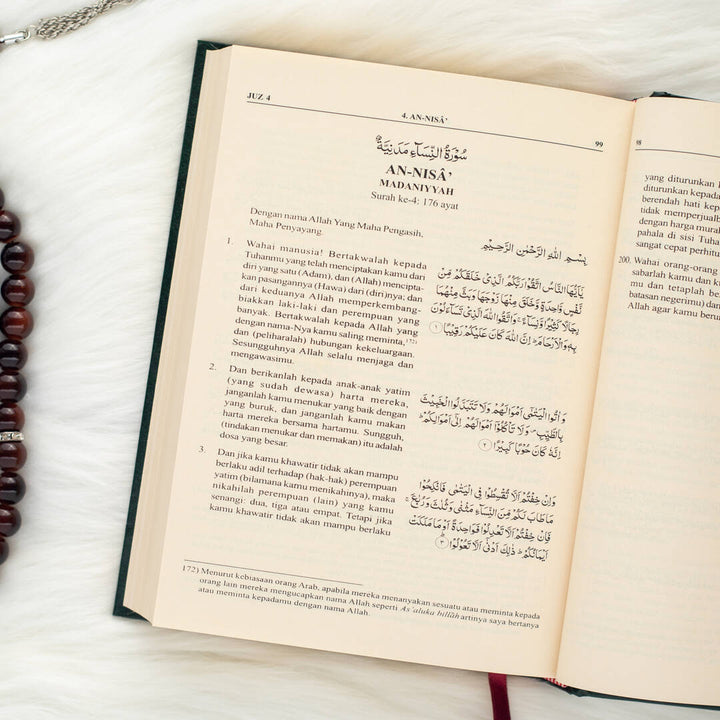 JUZ 4
4. AN-NISÂ’
99
سُوْرَةُ النِّسَاۤءِ مَدَنِيَّةٌ
AN-NISÂ’
MADANIYYAH
Surah ke-4: 176 ayat
Dengan nama Allah Yang Maha Pengasih,
Maha Penyayang.
بِسْمِ اللّٰهِ الرَّحْمٰنِ الرَّحِيْمِ
1. Wahai manusia! Bertakwalah kepada
Tuhanmu yang telah menciptakan kamu dari
diri yang satu (Adam), dan (Allah) mencipta-
kan pasangannya (Hawa) dari (diri)nya; dan
dari keduanya Allah memperkembang-
biakkan laki-laki dan perempuan yang
banyak. Bertakwalah kepada Allah yang
dengan nama-Nya kamu saling meminta,¹⁷²⁾
dan (peliharalah) hubungan kekeluargaan.
Sesungguhnya Allah selalu menjaga dan
mengawasimu.
يٰٓاَيُّهَا النَّاسُ اتَّقُوْا رَبَّكُمُ الَّذِيْ خَلَقَكُمْ مِّنْ
نَّفْسٍ وَّاحِدَةٍ وَّخَلَقَ مِنْهَا زَوْجَهَا وَبَثَّ مِنْهُمَا
رِجَالًا كَثِيْرًا وَّنِسَاۤءً ۚ وَاتَّقُوا اللّٰهَ الَّذِيْ تَسَاۤءَلُوْنَ
بِهٖ وَالْاَرْحَامَ ۗ اِنَّ اللّٰهَ كَانَ عَلَيْكُمْ رَقِيْبًا ١
2. Dan berikanlah kepada anak-anak yatim
(yang sudah dewasa) harta mereka,
janganlah kamu menukar yang baik dengan
yang buruk, dan janganlah kamu makan
harta mereka bersama hartamu. Sungguh,
(tindakan menukar dan memakan) itu adalah
dosa yang besar.
وَاٰتُوا الْيَتٰمٰىٓ اَمْوَالَهُمْ وَلَا تَتَبَدَّلُوا الْخَبِيْثَ
بِالطَّيِّبِ ۖ وَلَا تَأْكُلُوْٓا اَمْوَالَهُمْ اِلٰٓى اَمْوَالِكُمْ ۗ
اِنَّهٗ كَانَ حُوْبًا كَبِيْرًا ٢
3. Dan jika kamu khawatir tidak akan mampu
berlaku adil terhadap (hak-hak) perempuan
yatim (bilamana kamu menikahinya), maka
nikahilah perempuan (lain) yang kamu
senangi: dua, tiga atau empat. Tetapi jika
kamu khawatir tidak akan mampu berlaku
وَاِنْ خِفْتُمْ اَلَّا تُقْسِطُوْا فِى الْيَتٰمٰى فَانْكِحُوْا
مَا طَابَ لَكُمْ مِّنَ النِّسَاۤءِ مَثْنٰى وَثُلٰثَ وَرُبٰعَ ۚ
فَاِنْ خِفْتُمْ اَلَّا تَعْدِلُوْا فَوَاحِدَةً اَوْ مَا مَلَكَتْ
اَيْمَانُكُمْ ۗ ذٰلِكَ اَدْنٰٓى اَلَّا تَعُوْلُوْا ٣
172) Menurut kebiasaan orang Arab, apabila mereka menanyakan sesuatu atau meminta kepada
orang lain mereka mengucapkan nama Allah seperti As’aluka billâh artinya saya bertanya
atau meminta kepadamu dengan nama Allah.
98
yang diturunkan
diturunkan kepada
berendah hati kep
tidak memperjualb
dengan harga murah
pahala di sisi Tuha
sangat cepat perhitu
200. Wahai orang-orang
sabarlah kamu dan ku
mu dan tetaplah be
batasan negerimu) dan
Allah agar kamu berun